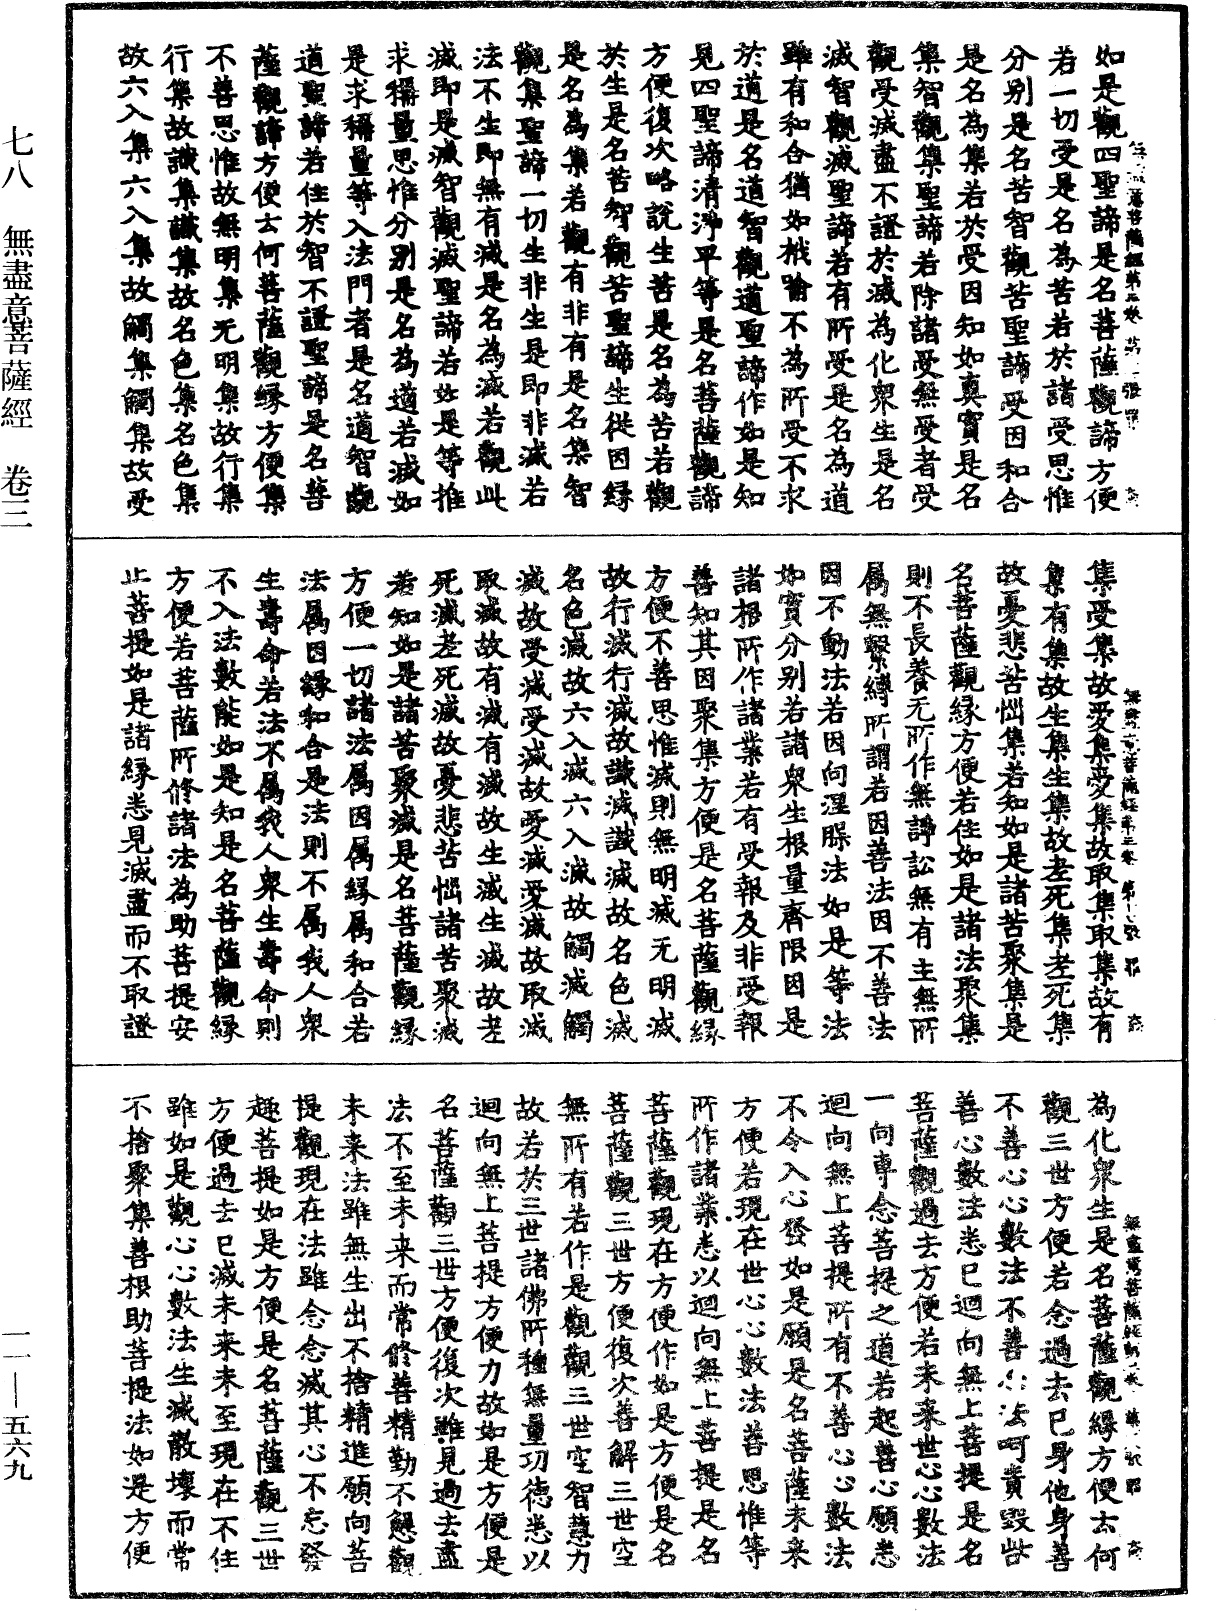 如是觀四聖諦是名菩薩觀諦方便
若一切受是名為苦若於諸受思惟
分別是名苦智觀苦聖諦受因和合
是名為集若於受因知如真實是名
集智觀集聖諦若除諸受無受者受
觀受滅盡不證於滅為化眾生是名
滅智觀滅聖諦若有所受是名為道
雖有和合猶如栰喻不為所受不求
於道是名道智觀道聖諦作如是知
見四聖諦清淨平等是名菩薩觀諦
方便復次略說生苦是名為苦若觀
於生是名苦智觀苦聖諦生從因緣
是名為集若觀有非有是名集智
觀集聖諦一切生非生是即非滅若
法不生即無有滅是名為滅若觀此
滅即是滅智觀滅聖諦若如是等推
求稱量思惟分別是名為道若滅如
是求稱量等入法門者是名道智觀
道聖諦若住於智不證聖諦是名菩
薩觀諦方便云何菩薩觀緣方便集
不善思惟故無明集无明集故行集
行集故識集識集故名色集名色集
故六入集六入集故觸集觸集故受
集受集故愛集愛集故取集取集故有
集有集故生集生集故老死集老死集
故憂悲苦惱集若知如是諸苦聚集是
名菩薩觀緣方便若住如是諸法聚集
則不長養无所作無諍訟無有主無所
属無繫縛所謂若因善法因不善法
因不動法若因向涅槃法如是等法
如實分別若諸眾生根量齊限因是
諸根所作諸業若有受報及非受報
善知其因聚集方便是名菩薩觀緣
方便不善思惟滅則無明滅无明滅
故行滅行滅故識滅識滅故名色滅
名色滅故六入滅六入滅故觸滅觸
滅故受滅受滅故愛滅愛滅故取滅
取滅故有滅有滅故生滅生滅故老
死滅老死滅故憂悲苦惱諸苦聚滅
若知如是諸苦聚滅是名菩薩觀緣
方便一切諸法属因属緣属和合若
法属因緣和合是法則不属我人眾
生壽命若法不属我人眾生壽命則
不入法數能如是知是名菩薩觀緣
方便若菩薩所修諸法為助菩提安
止菩提如是諸緣悉見滅盡而不取證
為化眾生是名菩薩觀緣方便云何
觀三世方便若念過去已身他身善
不善心心數法不善心法呵責毀呰
善心數法悉已迴向無上菩提是名
菩薩觀過去方便若未来世心心數法
一向專念菩提之道若起善心願悉
迴向無上菩提所有不善心心數法
不令入心發如是願是名菩薩未来
方便若現在世心心數法善思惟等
所作諸業悉以迴向無上菩提是名
菩薩觀現在方便作如是方便是名
菩薩觀三世方便復次善解三世空
無所有若作是觀觀三世空智慧力
故若於三世諸佛所種無量功德悉以
迴向無上菩提方便力故如是方便是
名菩薩觀三世方便復次雖見過去盡
法不至未来而常修善精勤不懈觀
未来法雖無生出不捨精進願向菩
提觀現在法雖念念滅其心不忘發
趣菩提如是方便是名菩薩觀三世
方便過去已滅未来未至現在不住
雖如是觀心心數法生滅散壞而常
不捨聚集善根助菩提法如是方便
七八 無盡意菩薩經 卷三
一一—五六九